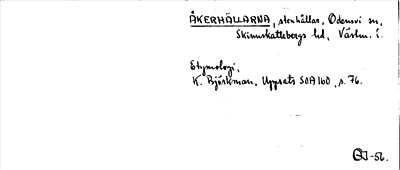 ÅKERHÄLLARNA, stenhällar, Odensvi sn,
Skinnskattebergs hd, Västm. l.
Etymologi.
K. Björkman, Uppsats SOA 160, s. 76.
-56.